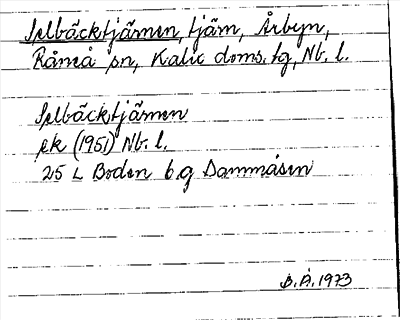 Selbäcktjärnen, tjärn, Årbyn,
Råneå sn, Kalix doms. tg, Nb. l.
Selbäcktjärnen
ek (1951) Nb. l.
25 L Boden 6 g Dammåsen
B.Å. 1973